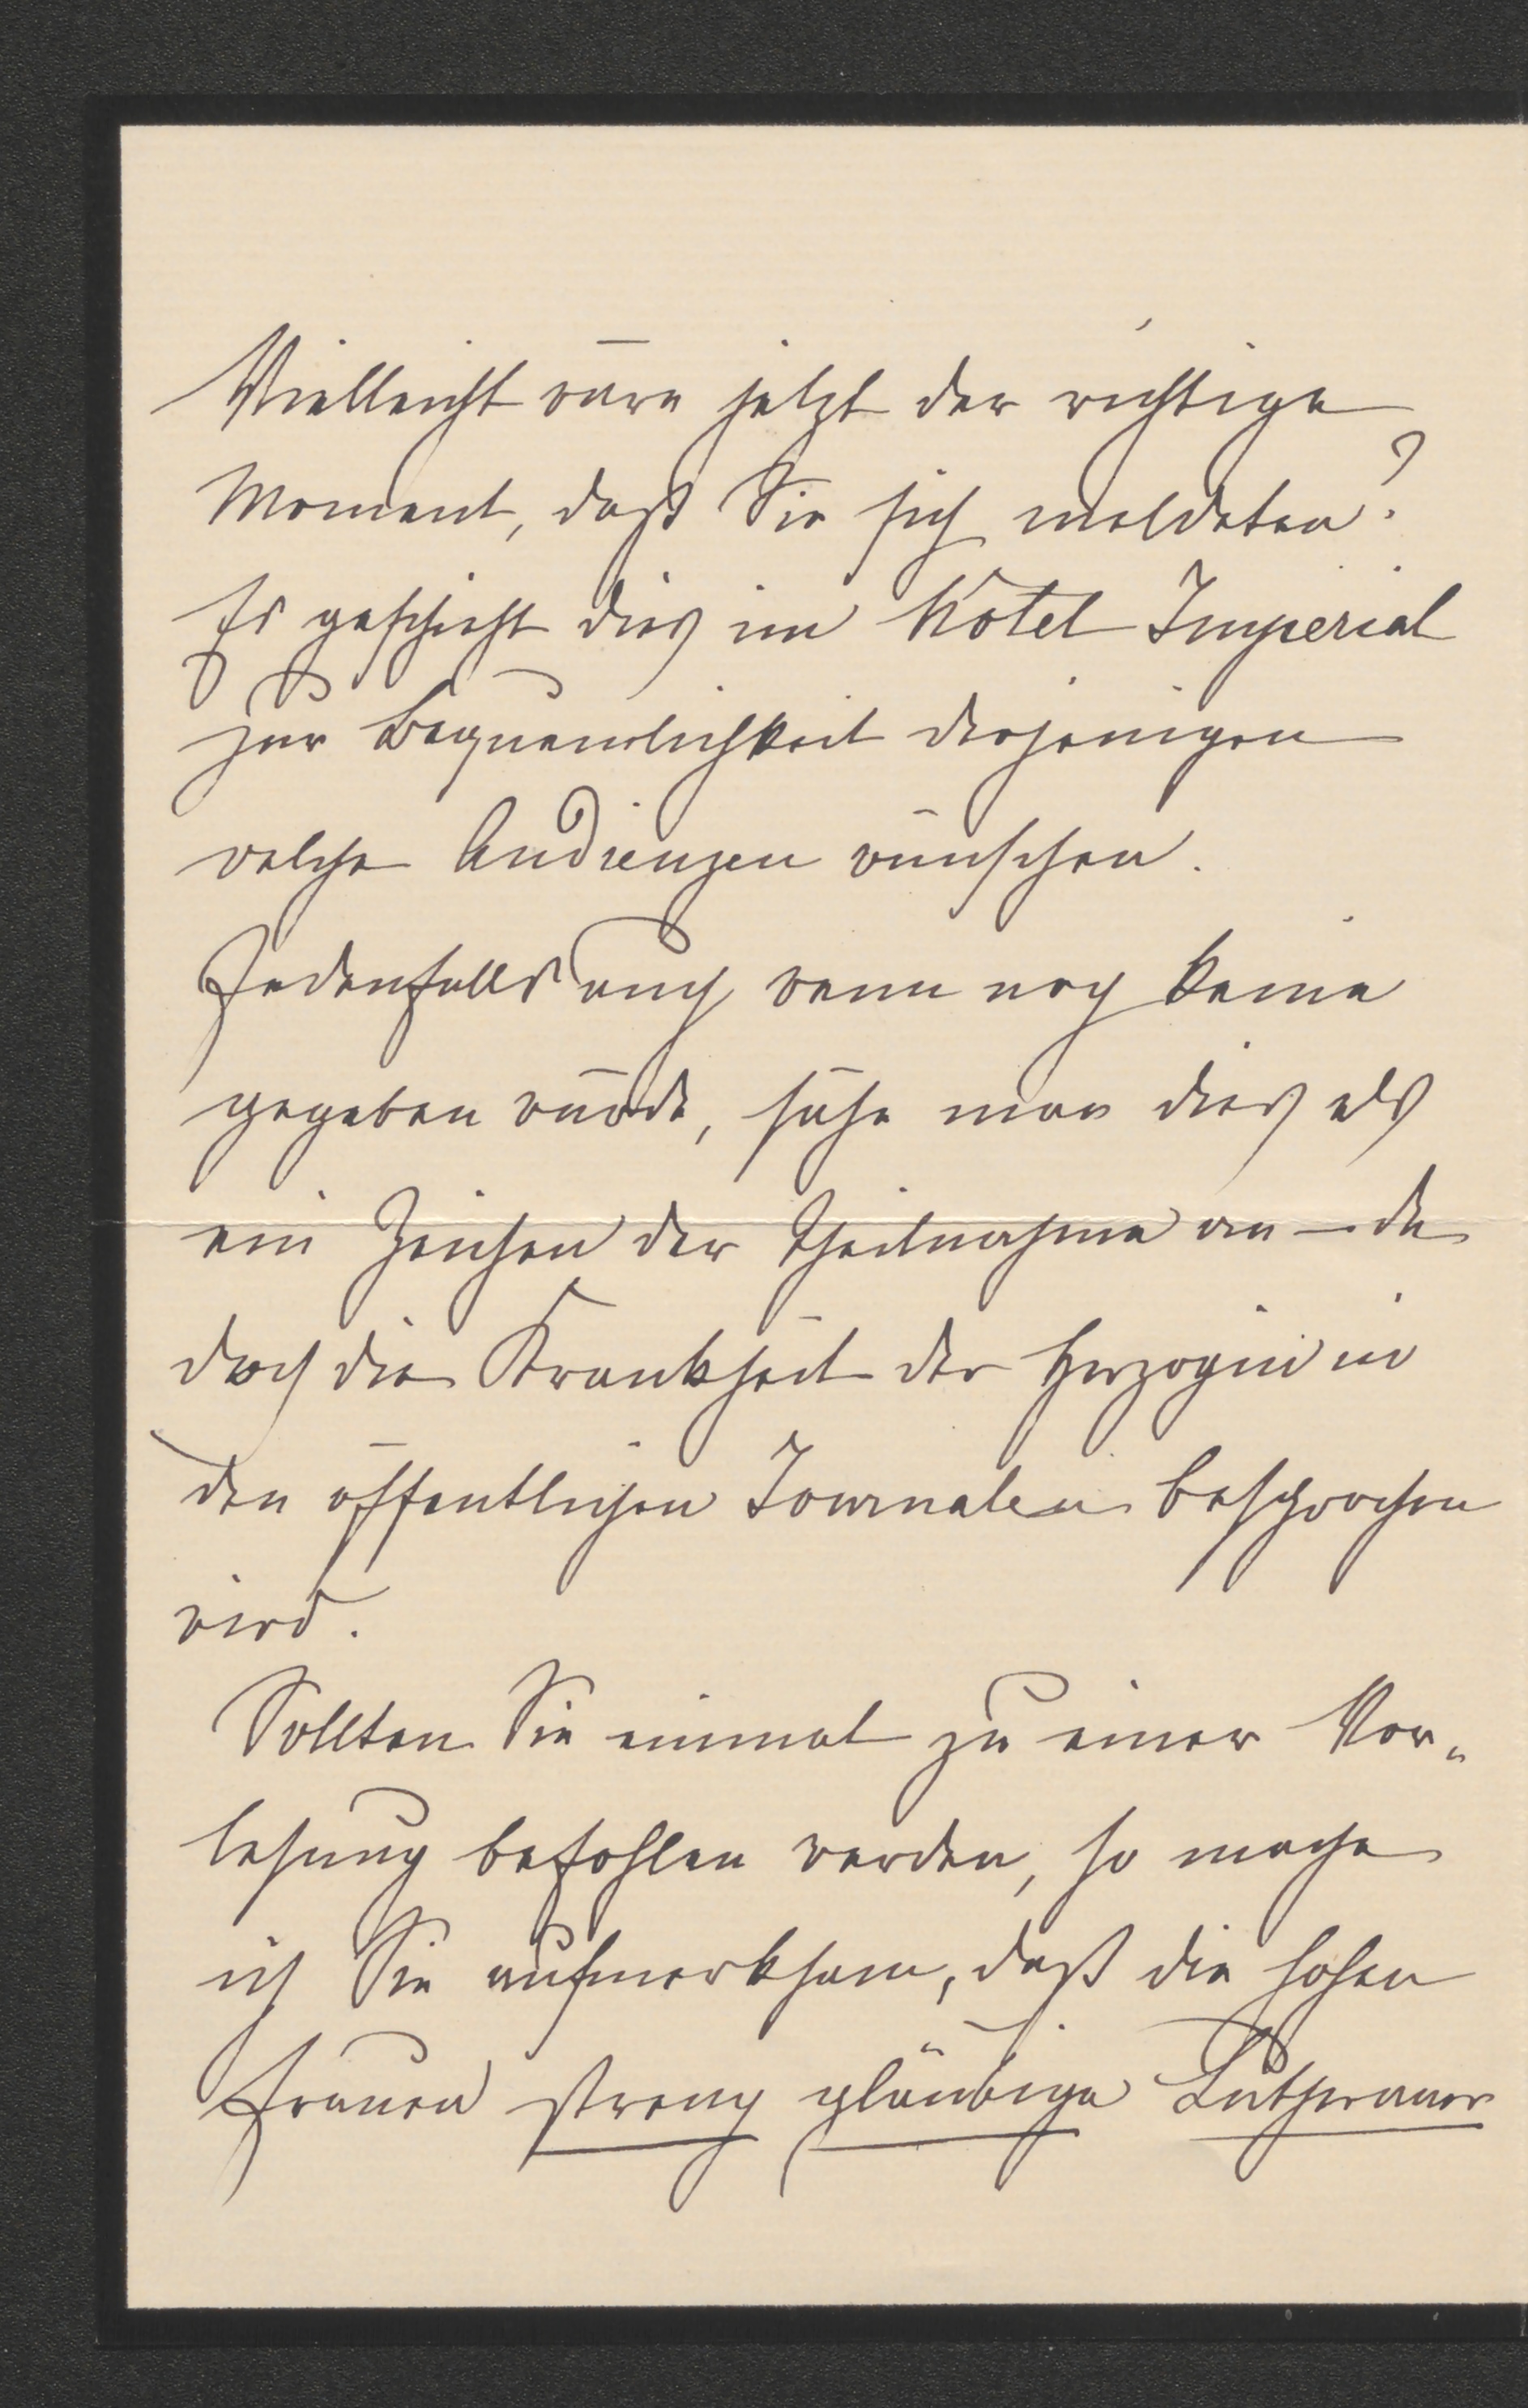 Vielleicht wäre jetzt der richtige
Moment, daß Sie sich meldeten?
Es geschieht dies im Hôtel Imperial
zur Bequemlichkeit derjenigen
welche Audienzen wünschen.
Jedenfalls auch wenn noch keine
gegeben würde, sähe man dies als
ein Zeichen der Theilnahme an – da
doch die Krankheit der Herzogin in
den öffentlichen Journalen besprochen
wird.
Sollten Sie einmal zu einer Vor„
lesung befohlen werden, so mache
ich Sie aufmerksam, daß die hohen
Frauen streng gläubige Lutheraner